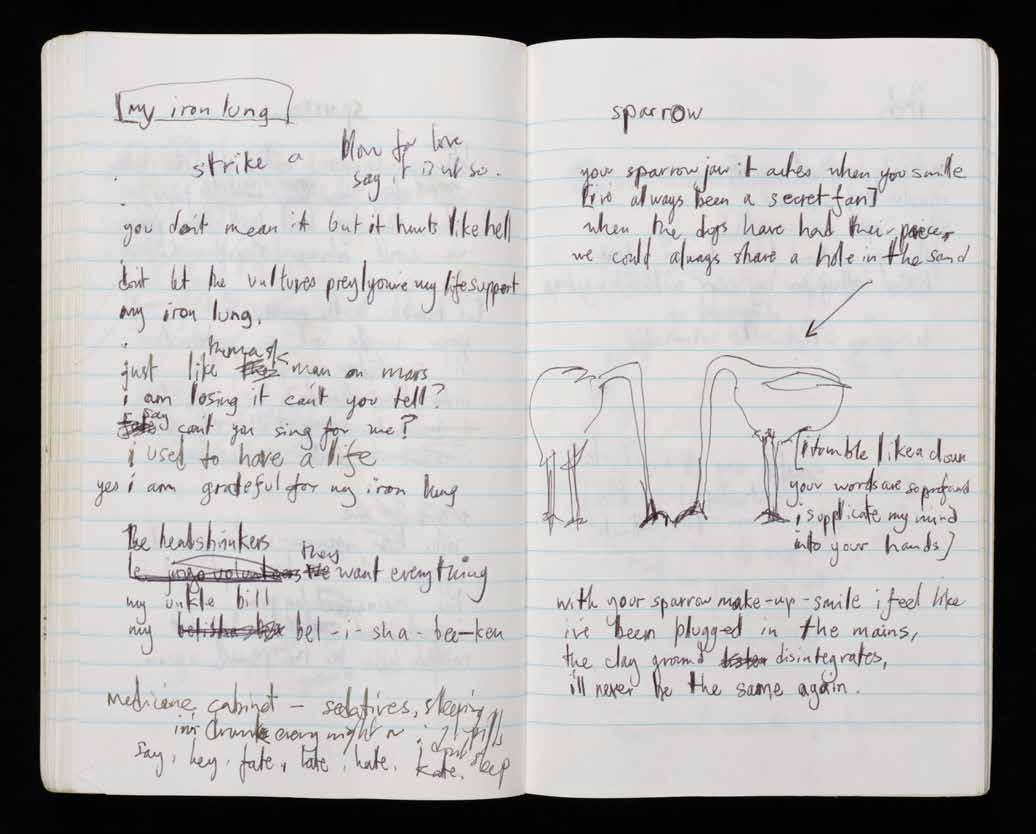 my iron lung
strike a blow for love
say it isnt so.
you don't mean it but it hurts like hell
don't let the vultures prey/you're my life support
my iron lung,
just like thomas k man on mars
i am losing it can't you tell?
say can't you sing for me?
i used to have a life
yes i am grateful for my iron lung
the headshrinkers
they want everything
my unkle bill
my bel-i-sha-bea-ken
medicine cabinet – sedatives, sleeping pills
im drunk every night or i dont sleep
say, hey, fate, late, hate, kate,
sparrow
your sparrow jaw it aches when you smile
[i've always been a secret fan]
when the dogs have had their
we could always share a hole in the sand
[i tumble like a clown
your words are so profound
i supplicate my mind
into your hands]
with your sparrow make-up-smile i feel like
ive been plugged in the mains,
the clay ground disintegrates,
ill never be the same again.